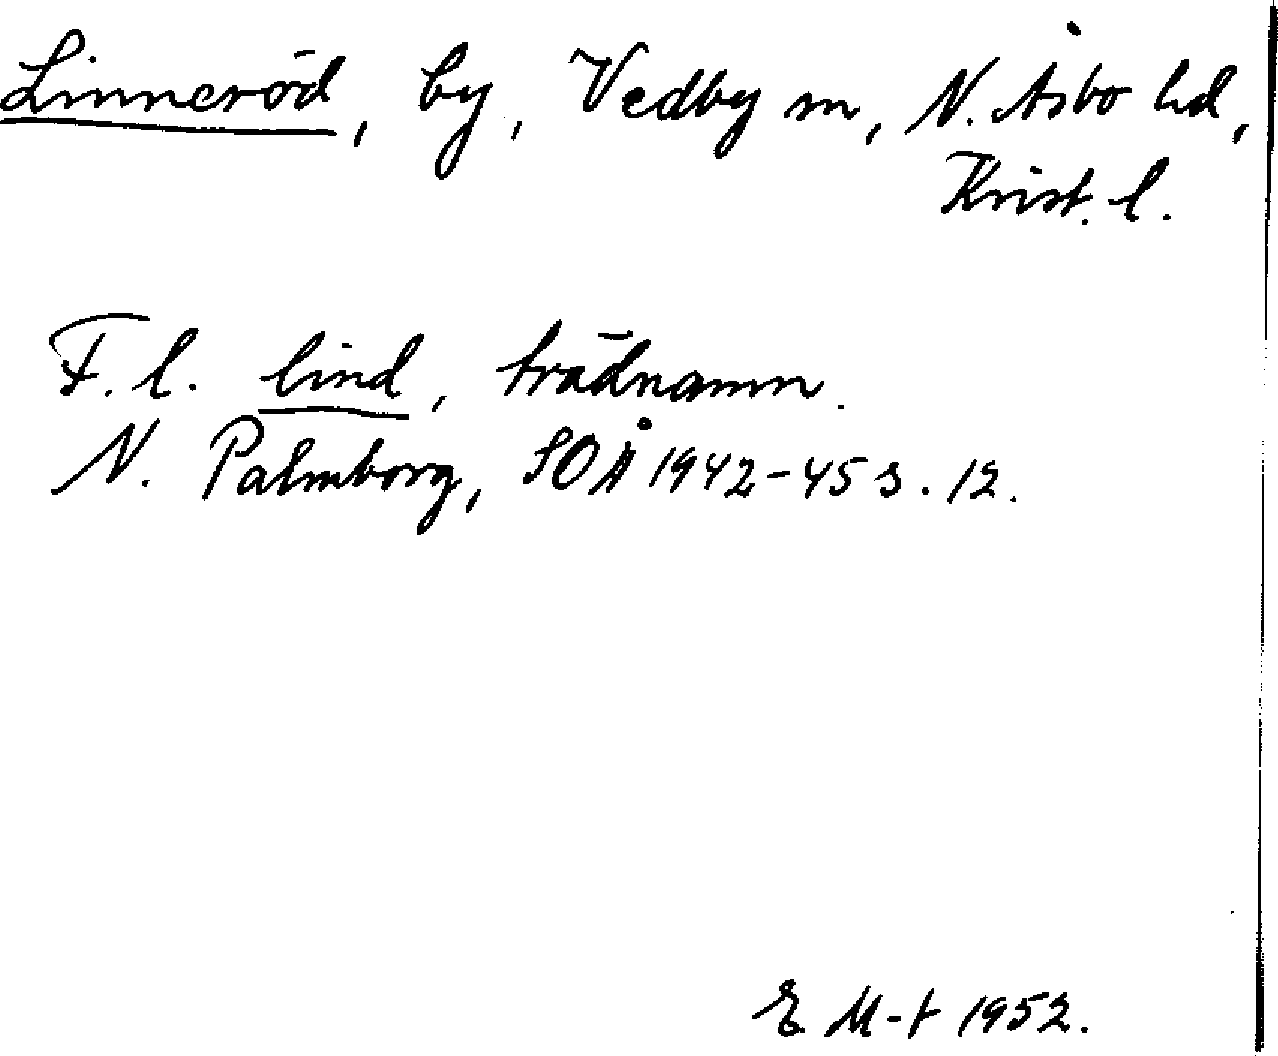 Linneröd, by, Vedby sn, N. Åsbo hd,
Krist. l.
F. l. lind, trädnamn.
N. Palmborg, SOÅ 1942-45 s. 12.
E M-t 1952.